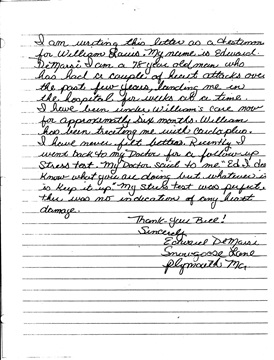 I am writing this letter as a testimon
for William Lauis. My name is Edward
DeMarsi I am a 78 year old man who
has had a couple of heart attacks over
the past few years, landing me in
the hospital for weeks at a time.
I have been under William's care now
for approximatly six months. William
has been treating me with
I have never felt better. Recently I
went back to my Doctor for a follow-up
Stress test. My Doctor said to me "Ed I do
Know what you are doing but whatever is
is Keep it up" My stress test was perfect
ther was no indication of any heart
damage.
Thank you Bill!
Sincerely
Edward DeMarsi
Snowgoose Lane
Plymouth Ma.